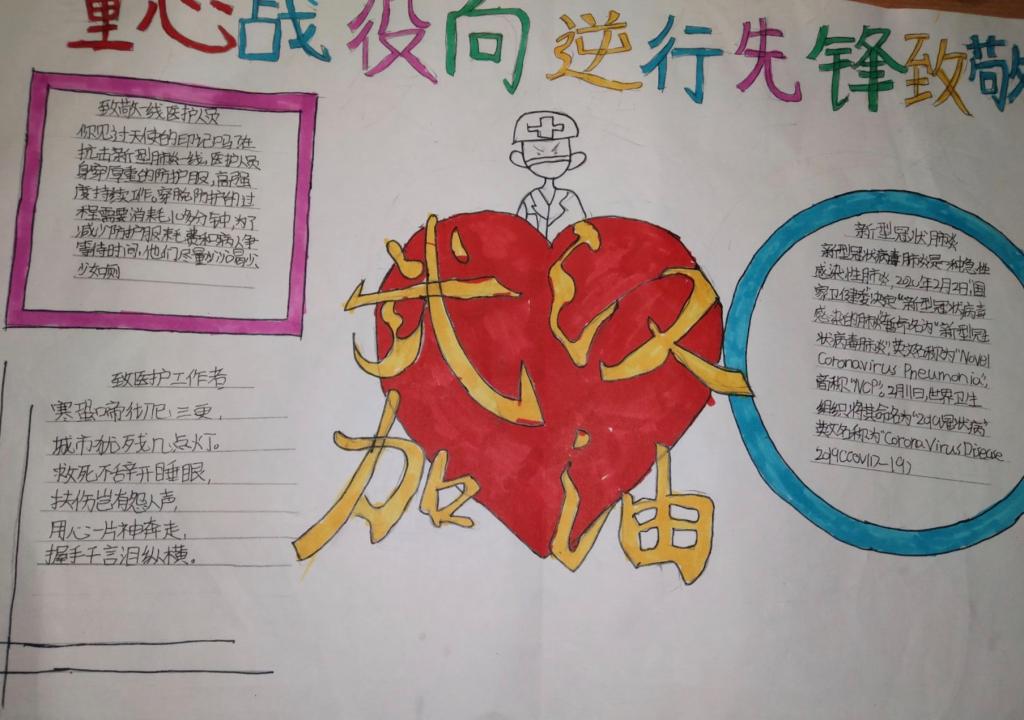 童心战役向逆行先锋致敬
致敬一线医护人员
你见过天使的印记吗?在
抗击新型肺炎一线,医护人员
身穿厚重的防护服,高强
度持续工作。穿脱防护的过
程需要消耗儿多分钟,为了
减少防护服耗费和病人争
等待时间,他们尽量少喝少
少女厕
致医护工作者
寒蛩啼彻三更,
城市犹残几点灯。
救死不辞开睡眼,
扶伤岂有怨人声,
用心一片神奔走,
握手千言泪纵横。
武汉
加油
新型冠状肺炎
新型冠状病毒肺炎是一种急性
感染性肺炎,2020年2月8日"国
家卫健委"决定"新型冠状病毒
感染的肺炎暂命名为"新型冠
状病毒肺炎",英文名称为"Novel
Coronavirus Pneumonia",
简称"NCP"。2月11日,世界卫生
组织将其命名为"2019冠状病"
英文名称为"Corona Virus Disease
2019(COVID-19)